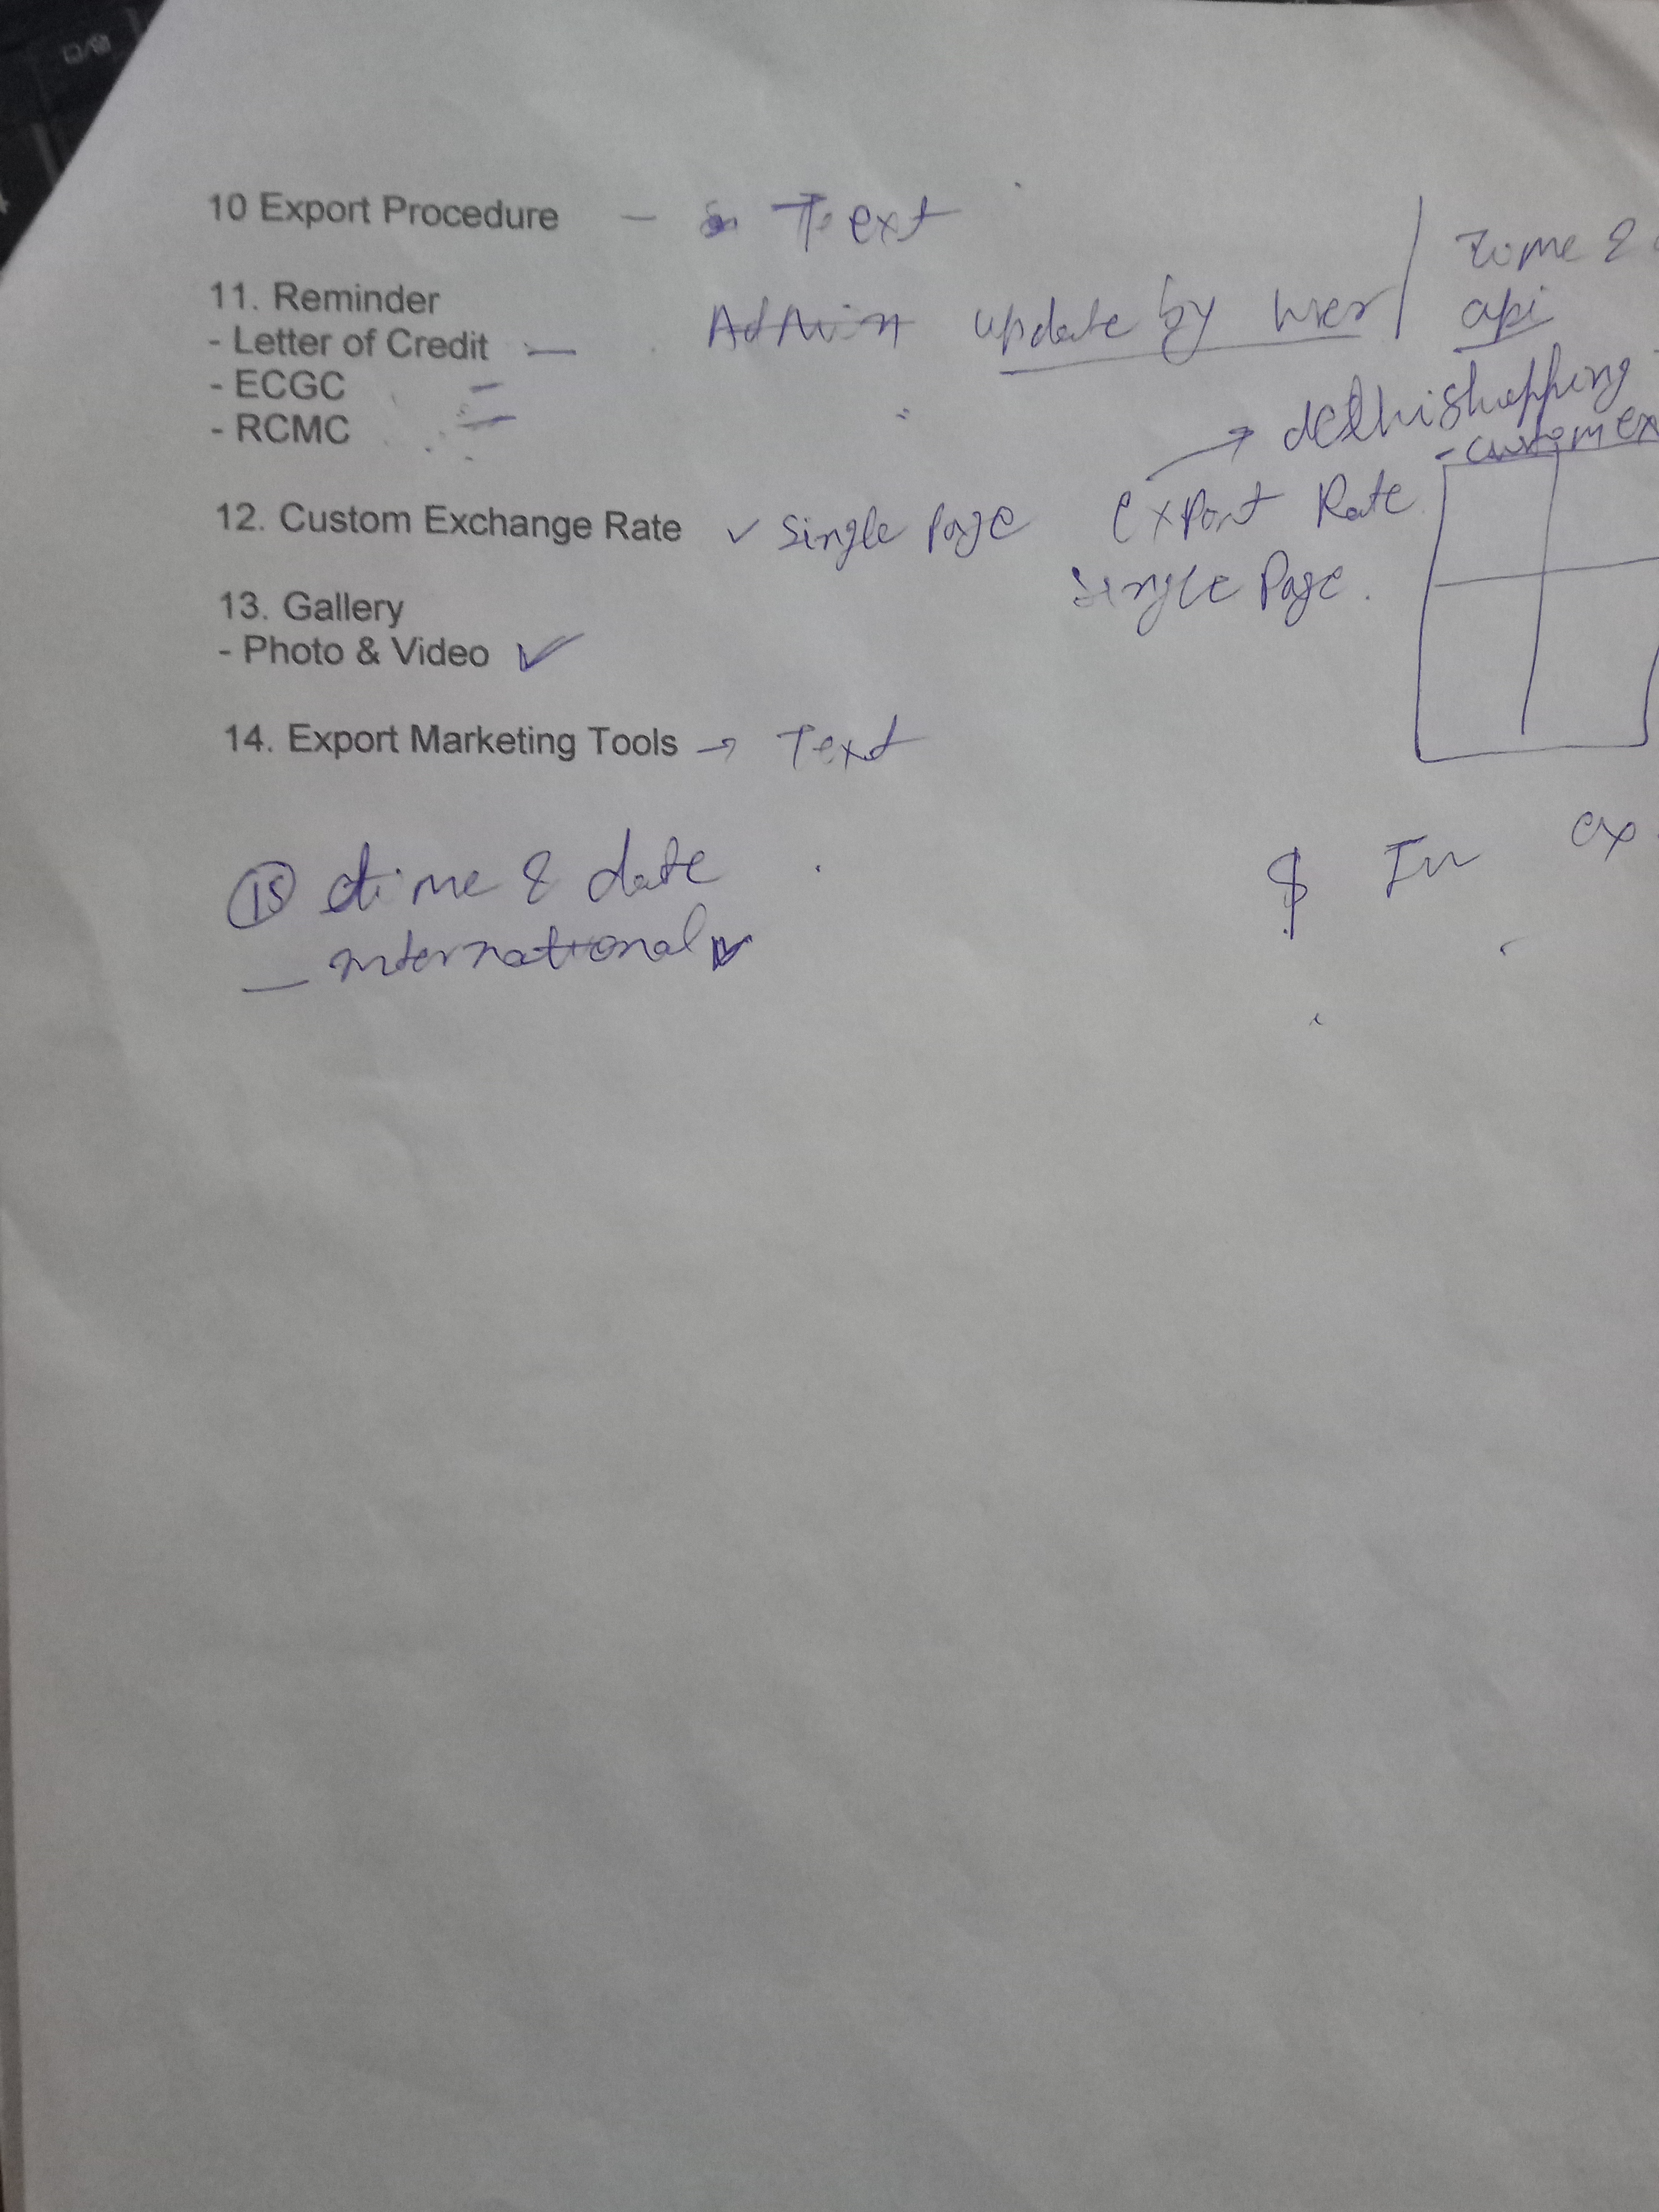 10 Export Procedure - Text
11. Reminder
- Letter of Credit - Admin update by user
- ECGC -
- RCMC -
time &
api
→ delhishopping
- custom ex
12. Custom Exchange Rate ✓ Single Page
Export Rate
Single Page.
13. Gallery
- Photo & Video ✓
14. Export Marketing Tools → Text
15 time & date
- international ✓
$ In ex